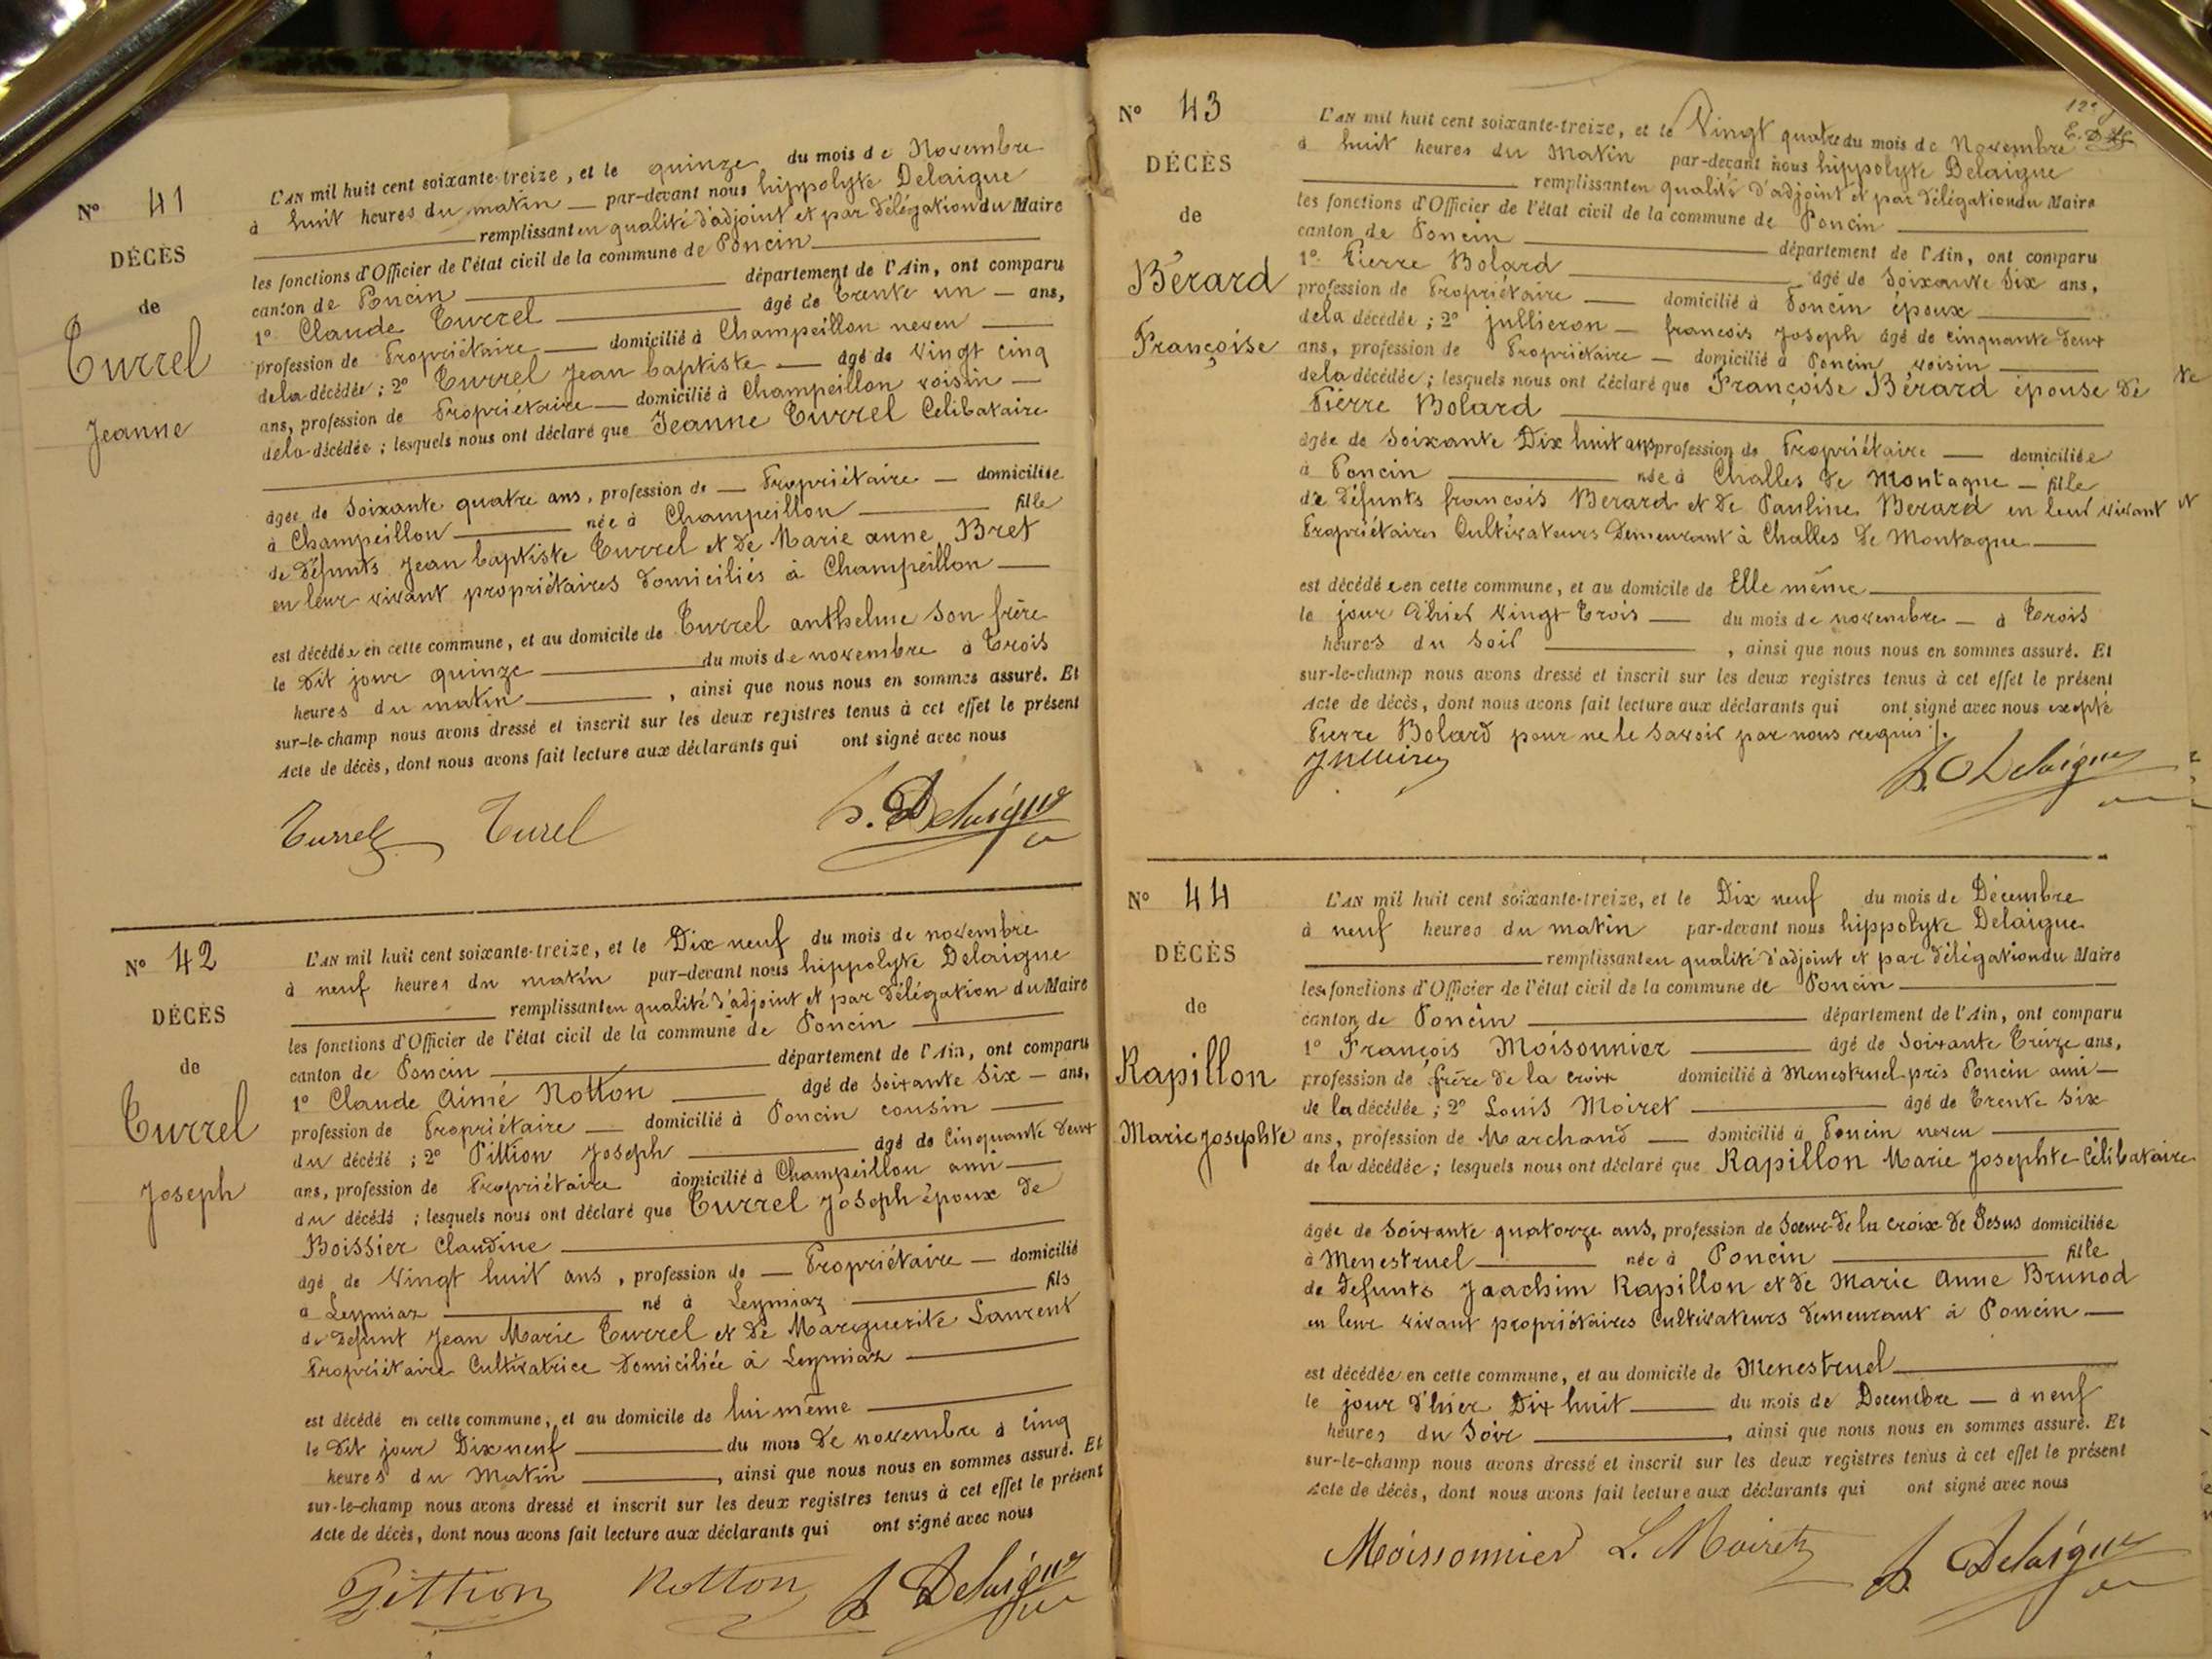 N° 41
DÉCÈS
de
Turrel
Jeanne
L'AN mil huit cent soixante-treize, et le quinze du mois de Novembre
à huit heures du matin — par-devant nous hippolyte Delaigue
remplissant en qualité d'adjoint et par délégation du Maire
les fonctions d'Officier de l'état civil de la commune de Poncin
canton de Poncin département de l'Ain, ont comparu
1° Claude Turrel âgé de trente un — ans,
profession de Propriétaire — domicilié à Champeillon neveu
de la décédée ; 2° Turrel Jean baptiste — âgé de vingt cinq
ans, profession de Propriétaire — domicilié à Champeillon voisin —
de la décédée ; lesquels nous ont déclaré que Jeanne Turrel Celibataire
âgée de soixante quatre ans, profession de — Propriétaire — domiciliée
à Champeillon née à Champeillon fille
de défunts Jean baptiste Turrel et de Marie anne Bret
en leur vivant propriétaires domiciliés à Champeillon
est décédée en cette commune, et au domicile de Turrel anthelme son frère
le dit jour quinze du mois de novembre à trois
heures du matin , ainsi que nous nous en sommes assuré. Et
sur-le-champ nous avons dressé et inscrit sur les deux registres tenus à cet effet le présent
Acte de décès, dont nous avons fait lecture aux déclarants qui ont signé avec nous
Turrel Turel h. Delaigue
N° 42
DÉCÈS
de
Turrel
Joseph
L'AN mil huit cent soixante-treize, et le Dix neuf du mois de novembre
à neuf heures du matin par-devant nous hippolyte Delaigue
remplissant en qualité d'adjoint et par délégation du Maire
les fonctions d'Officier de l'état civil de la commune de Poncin
canton de Poncin département de l'Ain, ont comparu
1° Claude Aimé Notton âgé de soixante six — ans,
profession de Propriétaire — domicilié à Poncin cousin
du décédé ; 2° Pittion Joseph âgé de cinquante deux
ans, profession de Propriétaire domicilié à Champeillon ami
du décédé ; lesquels nous ont déclaré que Turrel Joseph époux de
Boissier Claudine
âgé de vingt huit ans , profession de — Propriétaire — domicilié
à Leymiaz né à Leymiaz fils
de défunt Jean Marie Turrel et de Marguerite Laurent
Propriétaire Cultivatrice domiciliée à Leymiaz
est décédé en cette commune, et au domicile de lui même
le dit jour Dix neuf du mois de novembre à cinq
heures du Matin , ainsi que nous nous en sommes assuré. Et
sur-le-champ nous avons dressé et inscrit sur les deux registres tenus à cet effet le présent
Acte de décès, dont nous avons fait lecture aux déclarants qui ont signé avec nous
Pittion Notton h. Delaigue
N° 43
DÉCÈS
de
Bérard
Françoise
L'AN mil huit cent soixante-treize, et le Vingt quatre du mois de Novembre
à huit heures du Matin par-devant nous hippolyte Delaigue
remplissant en qualité d'adjoint et par délégation du Maire
les fonctions d'Officier de l'état civil de la commune de Poncin
canton de Poncin département de l'Ain, ont comparu
1° Pierre Bolard âgé de soixante six ans,
profession de Propriétaire — domicilié à Poncin époux
de la décédée ; 2° jullieron — françois Joseph âgé de cinquante deux
ans, profession de Propriétaire — domicilié à Poncin voisin
de la décédée ; lesquels nous ont déclaré que Françoise Bérard épouse de
Pierre Bolard
âgée de soixante Dix huit ans profession de Propriétaire — domiciliée
à Poncin née à Challes de Montagne — fille
de défunts françois Berard et de Pauline Berard en leur vivant
Propriétaires Cultivateurs Demeurant à Challes de Montagne
est décédée en cette commune, et au domicile de Elle même
le jour d'hier vingt trois — du mois de novembre — à trois
heures du soir , ainsi que nous nous en sommes assuré. Et
sur-le-champ nous avons dressé et inscrit sur les deux registres tenus à cet effet le présent
Acte de décès, dont nous avons fait lecture aux déclarants qui ont signé avec nous excepté
Pierre Bolard pour ne le savoir par nous requis /.
h. Delaigue
N° 44
DÉCÈS
de
Rapillon
Marie Josephte
L'AN mil huit cent soixante-treize, et le Dix neuf du mois de Décembre
à neuf heures du matin par-devant nous hippolyte Delaigue
remplissant en qualité d'adjoint et par délégation du Maire
les fonctions d'Officier de l'état civil de la commune de Poncin
canton de Poncin département de l'Ain, ont comparu
1° François Moisonnier âgé de soixante treize ans,
profession de frère de la croix domicilié à Menestruel près Poncin ami —
de la décédée ; 2° Louis Moiret âgé de trente six
ans, profession de Marchand — domicilié à Poncin neveu
de la décédée ; lesquels nous ont déclaré que Rapillon Marie Josephte Célibataire
âgée de soixante quatorze ans, profession de Soeur de la croix de Jesus domiciliée
à Menestruel née à Poncin fille
de défunts Joachim Rapillon et de Marie Anne Brunod
en leur vivant propriétaires Cultivateurs demeurant à Poncin —
est décédée en cette commune, et au domicile de Menestruel
le jour d'hier Dix huit du mois de Decembre — à neuf
heures du Soir , ainsi que nous nous en sommes assuré. Et
sur-le-champ nous avons dressé et inscrit sur les deux registres tenus à cet effet le présent
Acte de décès, dont nous avons fait lecture aux déclarants qui ont signé avec nous
Moissonnier L. Moiret h. Delaigue